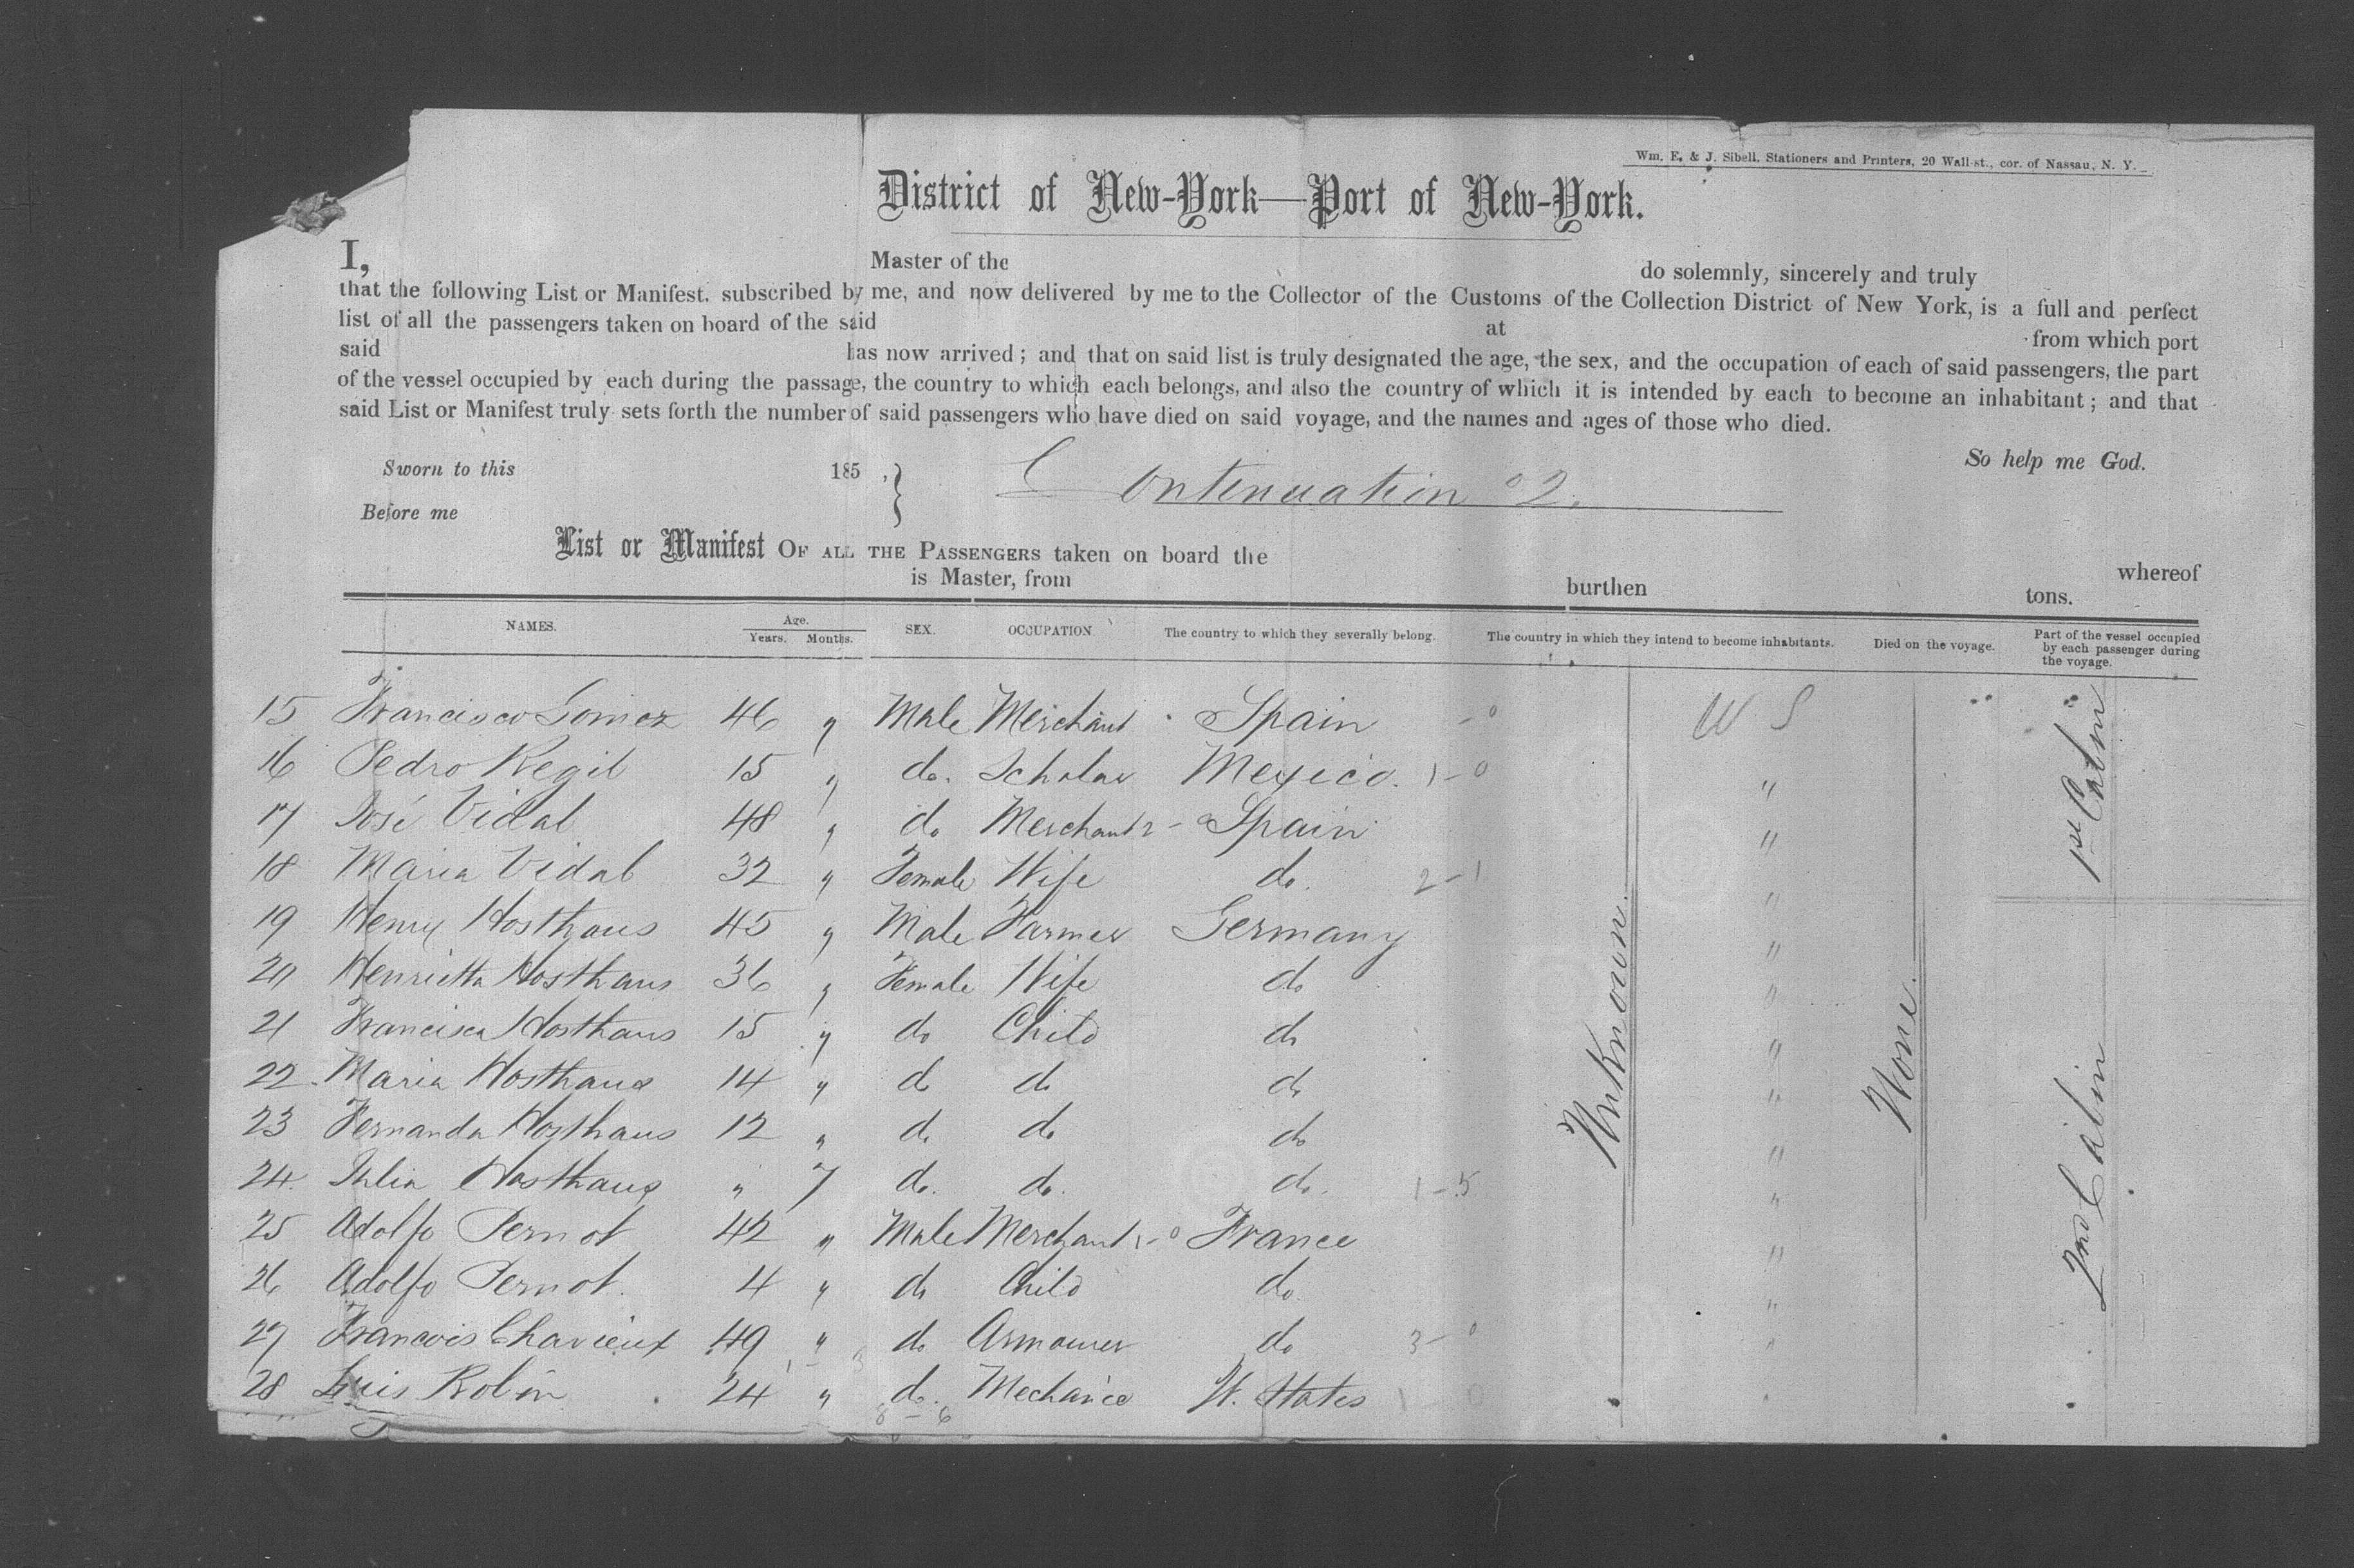 Wm. E. & J. Sibell, Stationers and Printers, 20 Wall-st., cor. of Nassau, N. Y.
District of New-York—Port of New-York.
I, Master of the do solemnly, sincerely and truly
that the following List or Manifest, subscribed by me, and now delivered by me to the Collector of the Customs of the Collection District of New York, is a full and perfect
list of all the passengers taken on board of the said at from which port
said has now arrived; and that on said list is truly designated the age, the sex, and the occupation of each of said passengers, the part
of the vessel occupied by each during the passage, the country to which each belongs, and also the country of which it is intended by each to become an inhabitant; and that
said List or Manifest truly sets forth the number of said passengers who have died on said voyage, and the names and ages of those who died.
So help me God.
Sworn to this 185 ,
Before me
Continuation 2.
List or Manifest OF ALL THE PASSENGERS taken on board the whereof
is Master, from burthen tons.
NAMES. Age. Years. Months. SEX. OCCUPATION. The country to which they severally belong. The country in which they intend to become inhabitants. Died on the voyage. Part of the vessel occupied by each passenger during the voyage.
15 Francisco Gomez 46 " Male Merchant Spain U S
16 Pedro Regil 15 " do. Scholar Mexico. 1-0 "
17 José Vidal 48 " do Merchant Spain "
18 Maria Vidal 32 " Female Wife do. 2-1 "
19 Henry Hosthaus 45 " Male Farmer Germany "
20 Henrietta Hosthaus 36 " Female Wife do "
21 Francisca Hosthaus 15 " do Child do "
22 Maria Hosthaus 14 " do do do "
23 Fernanda Hosthaus 12 " do do do "
24 Julia Hosthaus " 7 do. do. do. 1-5 "
25 Adolfo Pernot 42 " Male Merchant France "
26 Adolfo Pernot 4 " do Child do "
27 Francois Chavieux 49 " do Armourer do 3-0 "
28 Luis Robin 24 " do. Mechanic U. States 1 0
Unknown.
None.
1st Cabin
2nd Cabin